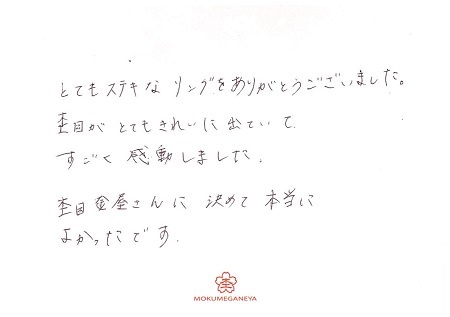 とてもステキな リングをありがとうございました。
杢目が とてもきれいに出ていて
すごく 感動しました。
杢目金屋さんに 決めて 本当に
よかったです。
杢
MOKUMEGANEYA